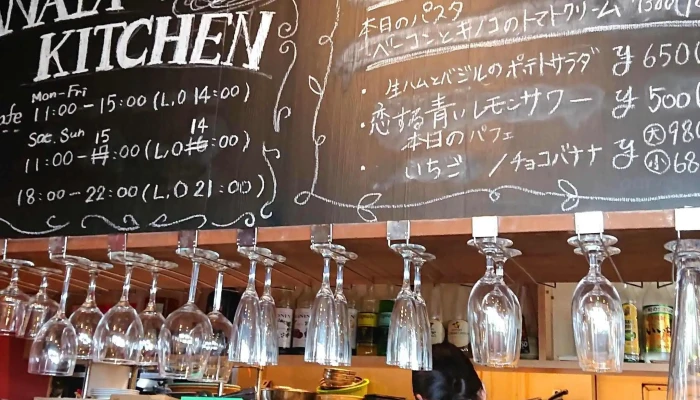 KITCHEN
Mon-Fri
11:00-15:00(L.O 14:00)
Sat. Sun
15
14
11:00- :00(L.O :00)
18:00-22:00(L.O 21:00)
本日のパスタ
ベーコンとキノコのトマトクリーム
・生ハムとバジルのポテトサラダ ¥650(
・恋する青いレモンサワー ¥500(
本日のパフェ
・いちご /チョコバナナ ¥
大98
小68